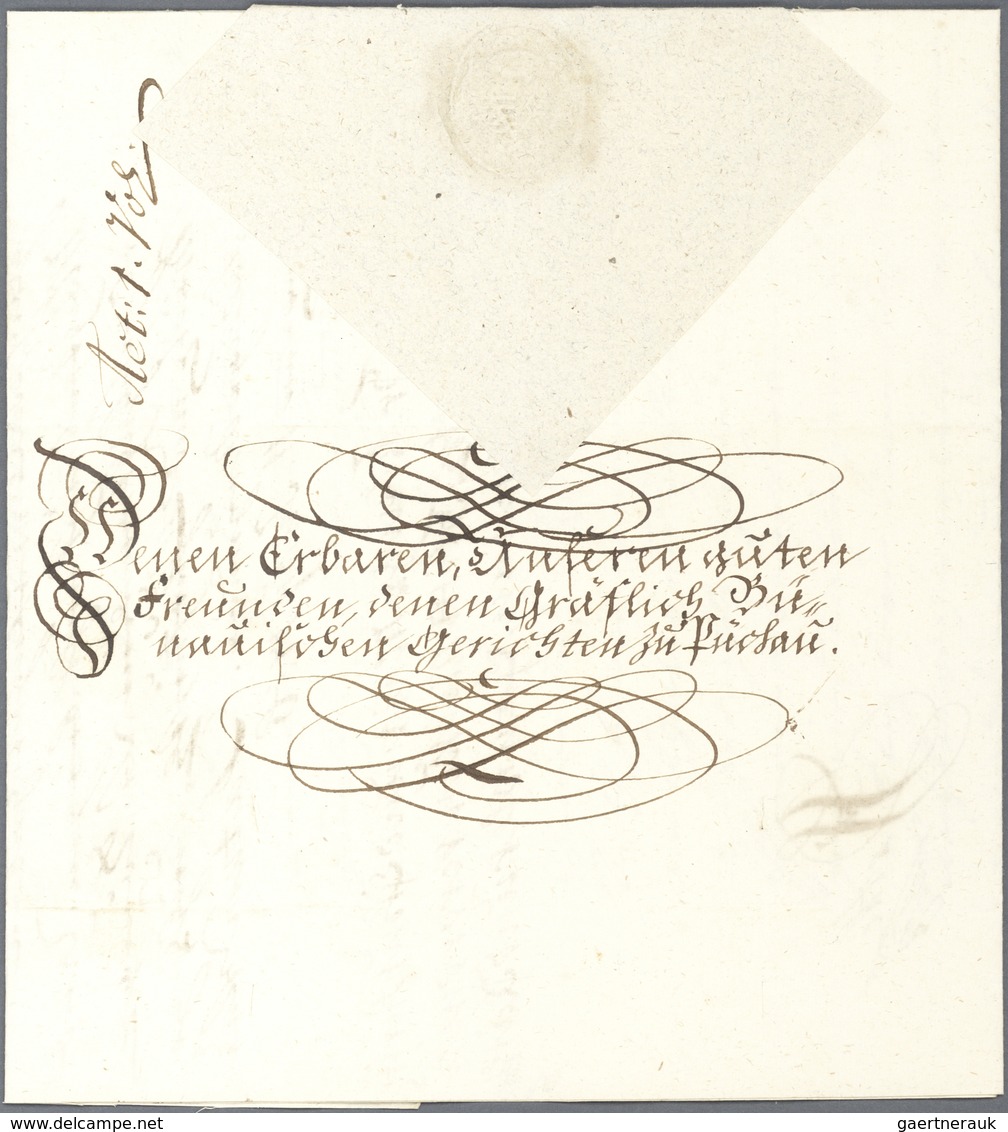 Act: 1. Vol:
Denen Erbaren, Unseren guten
Freunden, denen Gräflich Bü-
nauischen Gerichten zu Püchau.
delcampe.net
gaertnerauk